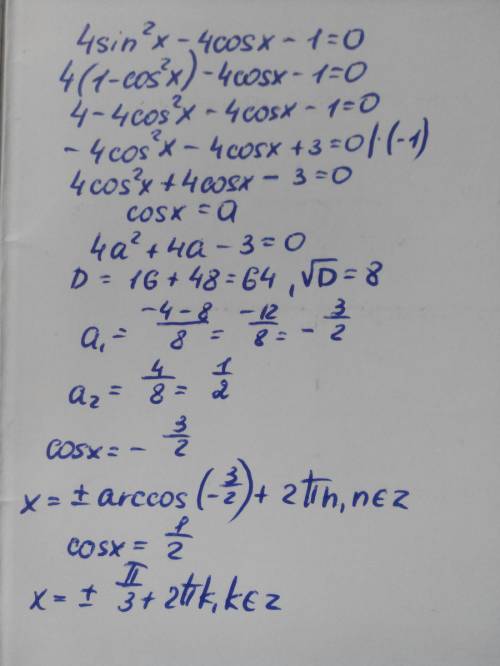 4sin²x - 4cosx - 1 = 0
4(1-cos²x) - 4cosx - 1 = 0
4 - 4cos²x - 4cosx - 1 = 0
- 4cos²x - 4cosx + 3 = 0 | · (-1)
4cos²x + 4cosx - 3 = 0
cosx = a
4a² + 4a - 3 = 0
D = 16 + 48 = 64, √D = 8
a₁ = (-4-8)/8 = -12/8 = - 3/2
a₂ = 4/8 = 1/2
cosx = - 3/2
x = ± arccos(-3/2) + 2πn, n∈z
cosx = 1/2
x = ± π/3 + 2πk, k∈z